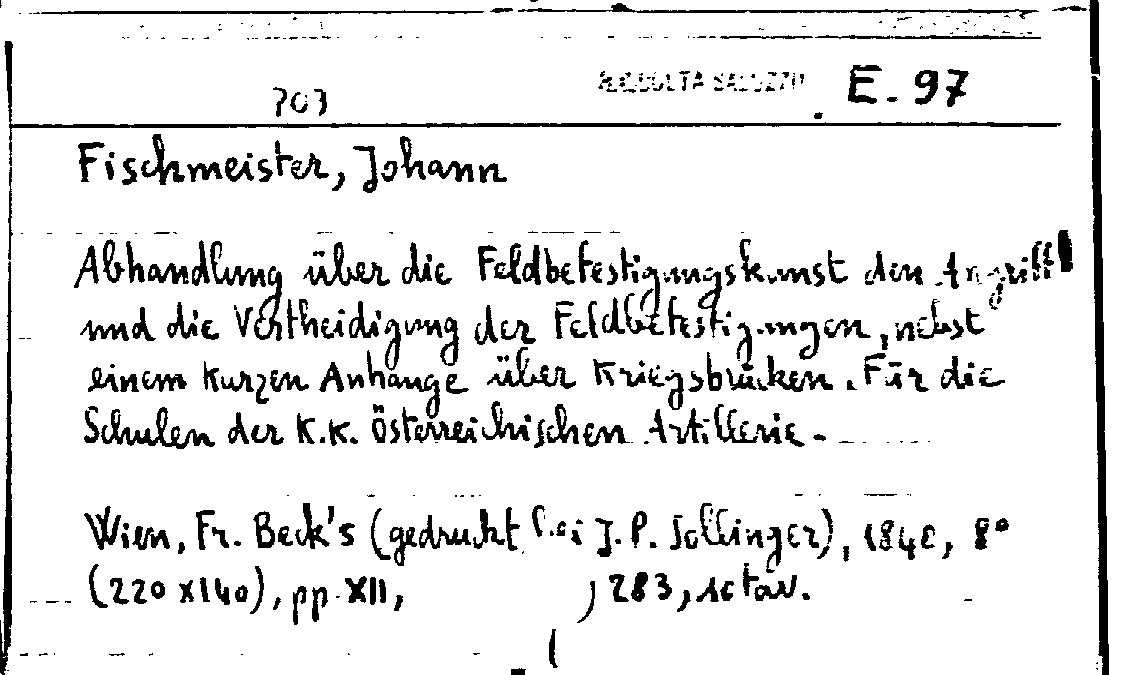 703 RACCOLTA SALUZZO E. 97
Fischmeister, Johann
Abhandlung über die Feldbefestigungskunst den Angriff
und die Vertheidigung der Feldbefestigungen, nebst
einem kurzen Anhange über Kriegsbrücken. Für die
Schulen der K.K. österreichischen Artillerie.
Wien, Fr. Beck's (gedruckt bei J.P. Sollinger), 1840, 8°
(220 x 140), pp. XII, , 283, tav.